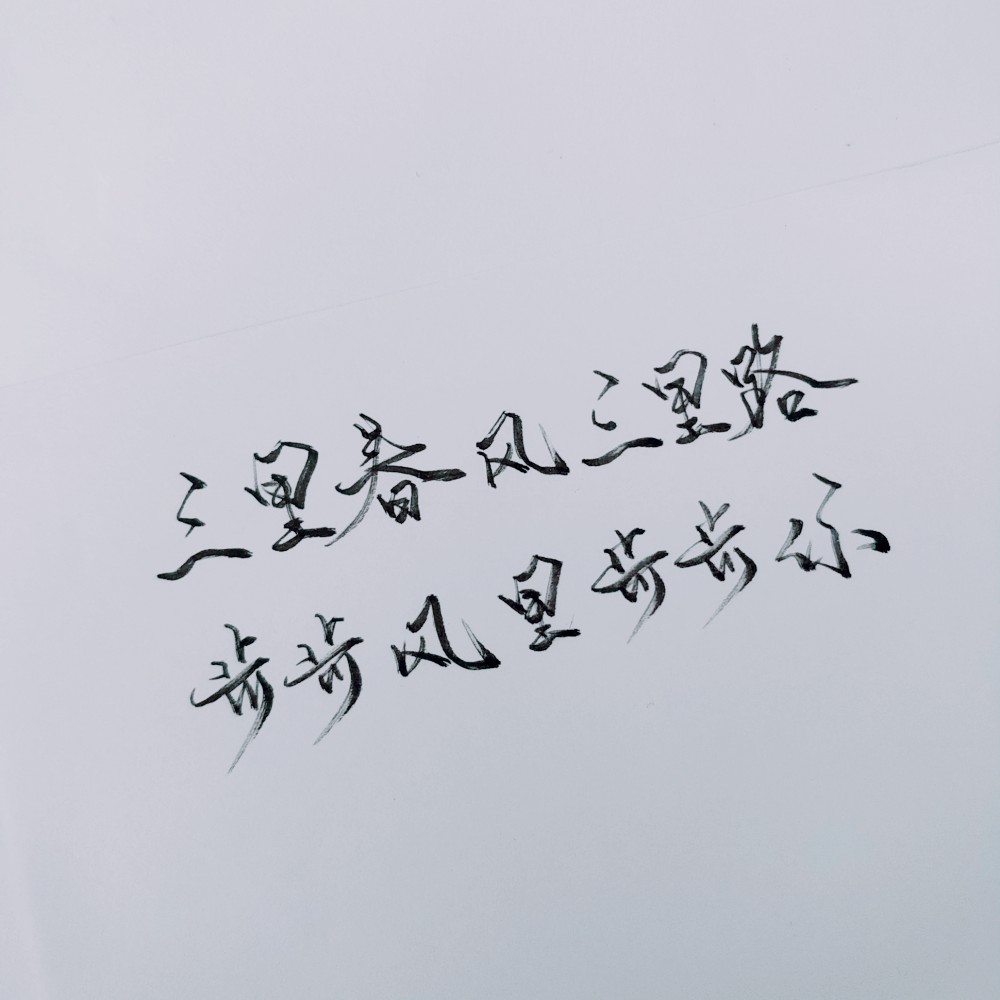 三里春风三里路
步步风里步步你